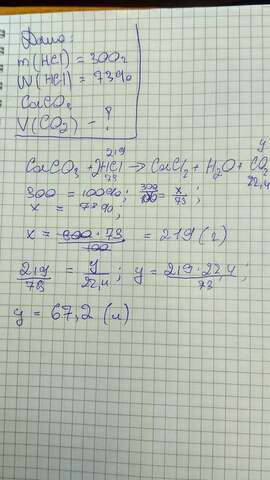 Дано:
m(HCl) = 300г
W(HCl) = 73%
CaCO₃
V(CO₂) - ?
219 y
CaCO₃ + 2HCl → CaCl₂ + H₂O + CO₂
73 22,4
300 = 100%; 300/100 = x/73;
x = 73%;
x = 300·73/100 = 219 (г)
219/73 = y/22,4; y = 219·22,4/73;
y = 67,2 (л)